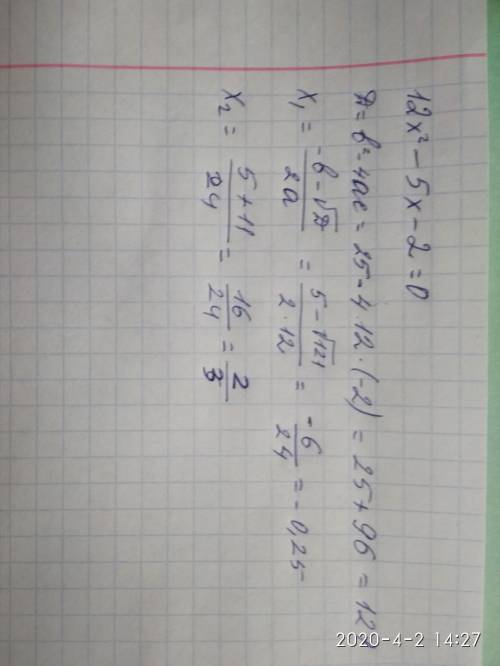 12x² - 5x - 2 = 0
D = b² - 4ac = 25 - 4·12·(-2) = 25 + 96 = 12
x₁ = (-b - √D)/(2a) = (5 - √121)/(2·12) = -6/24 = -0,25
x₂ = (5 + 11)/24 = 16/24 = 2/3
2020-4-2 14:27